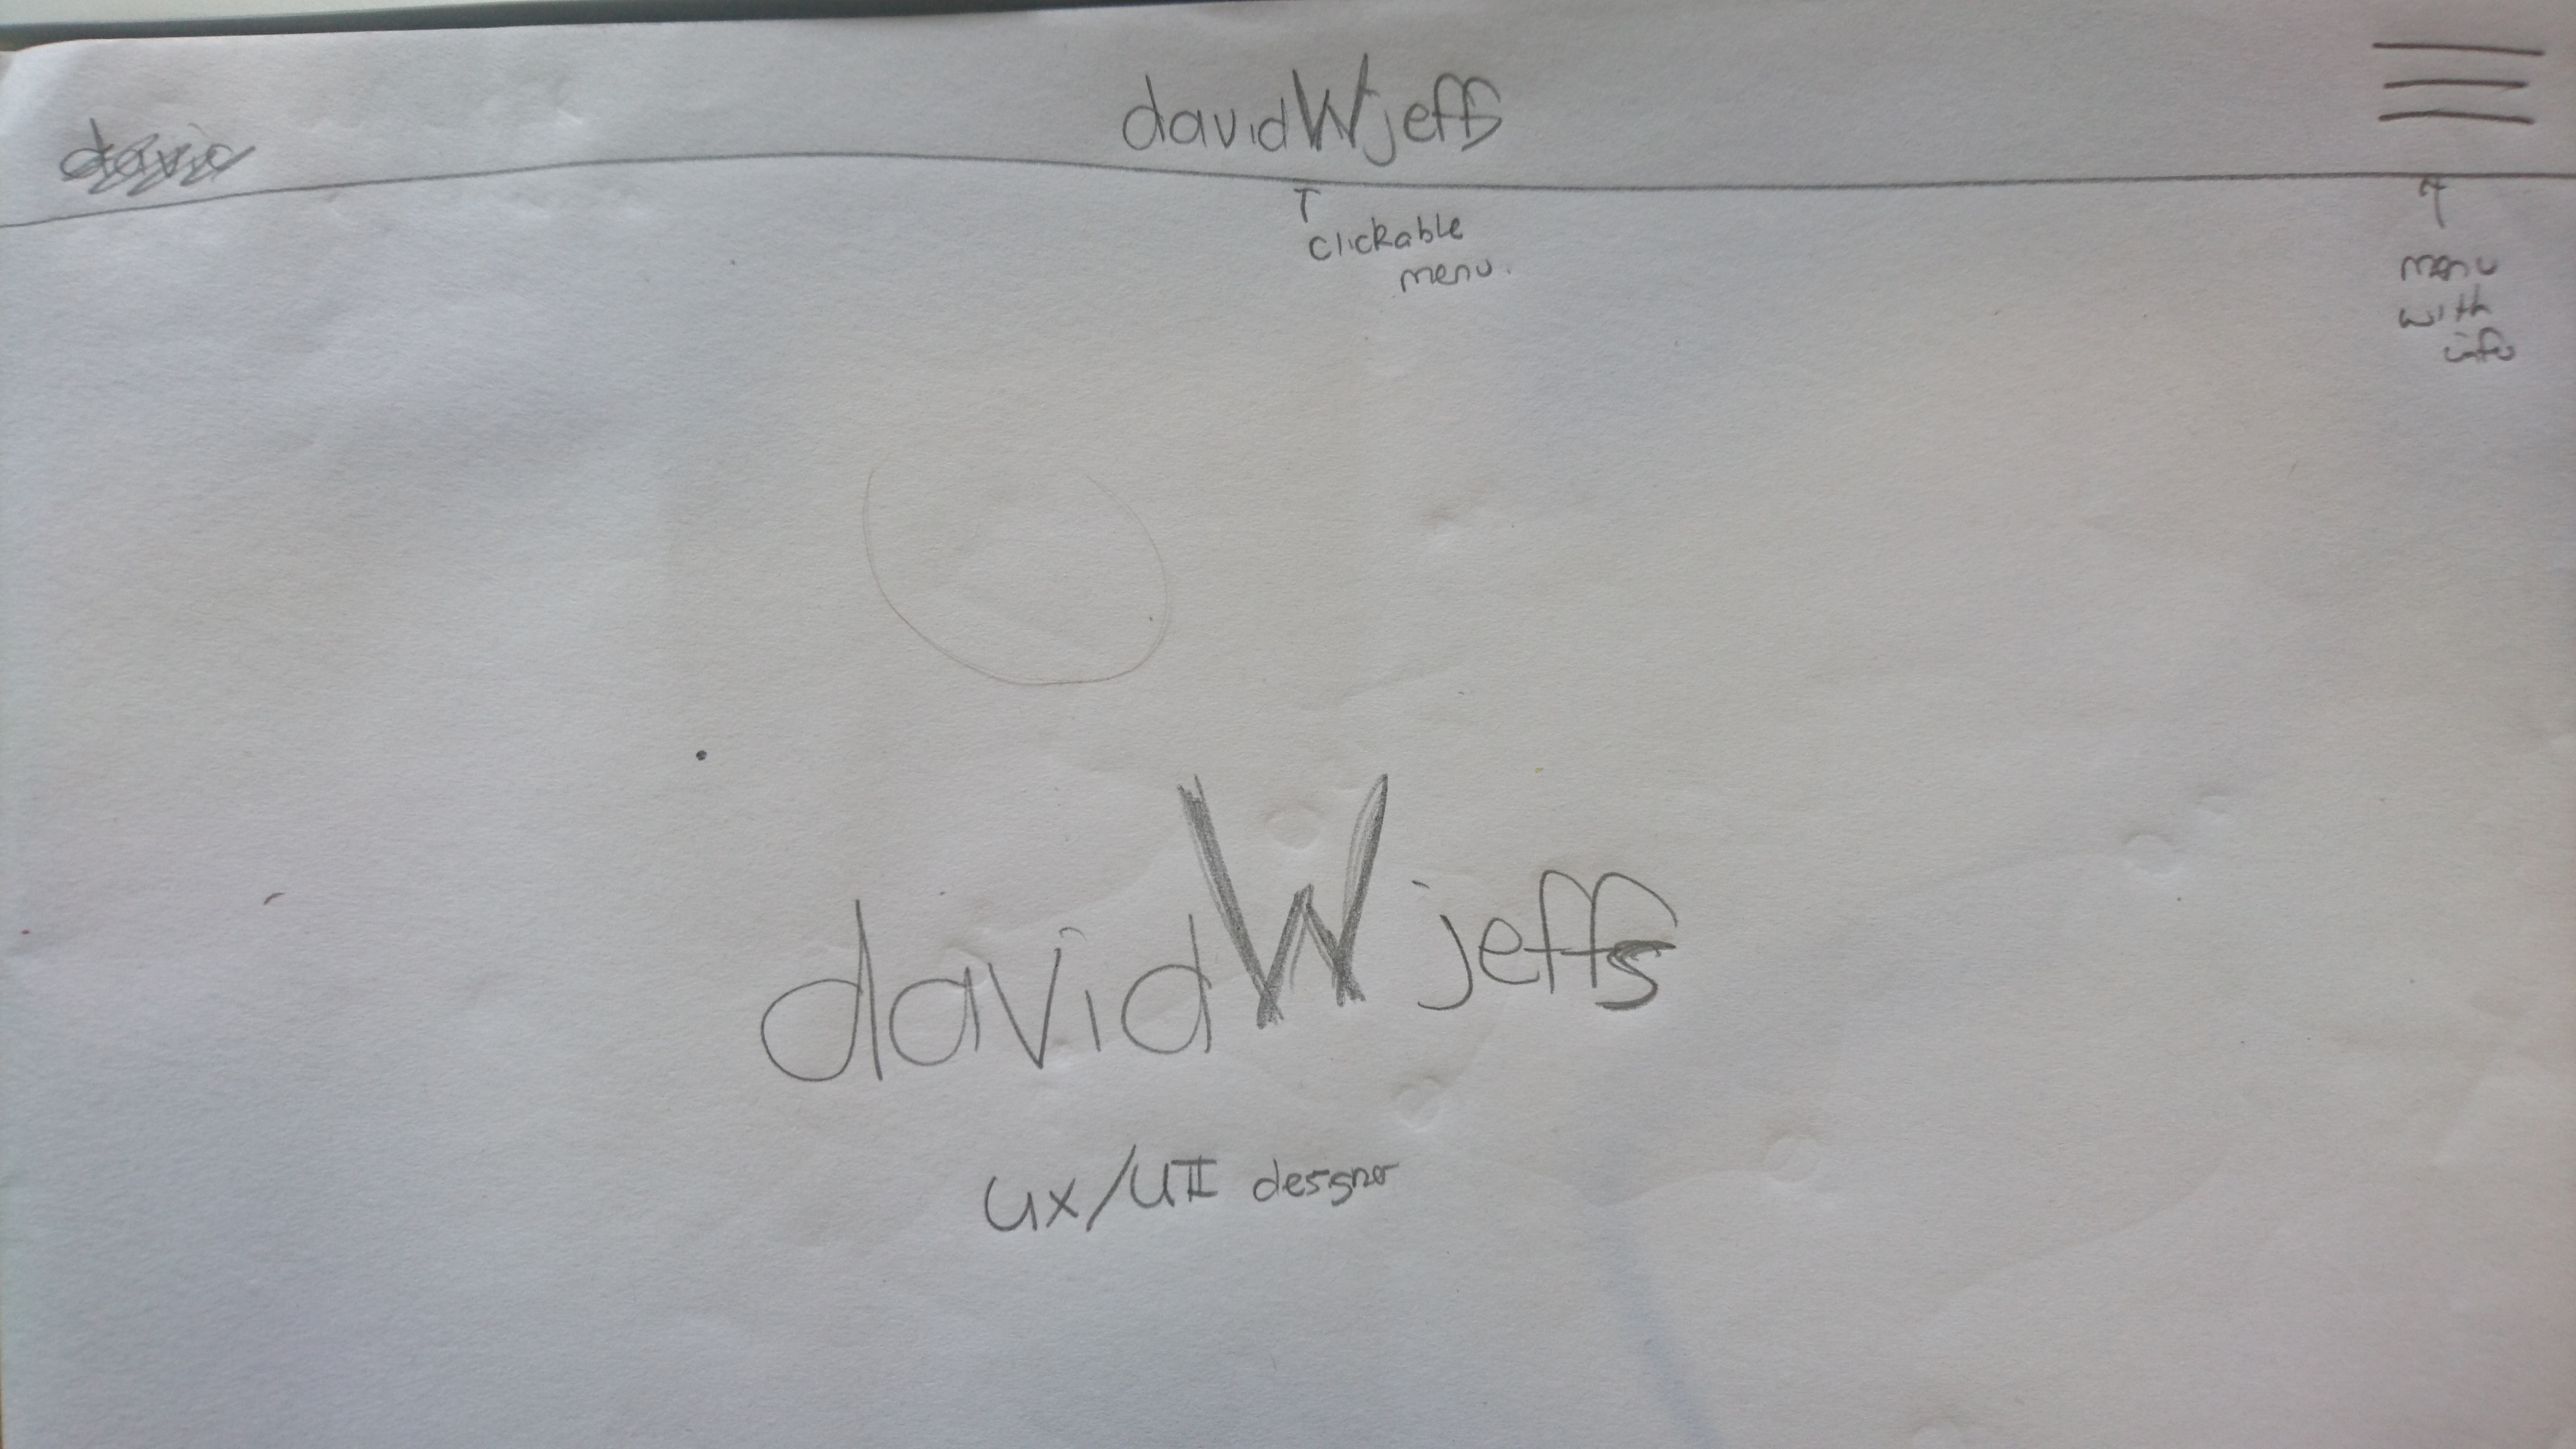 davidWjeffs
clickable
menu.
menu
with
info
davidWjeffs
UX/UI designer